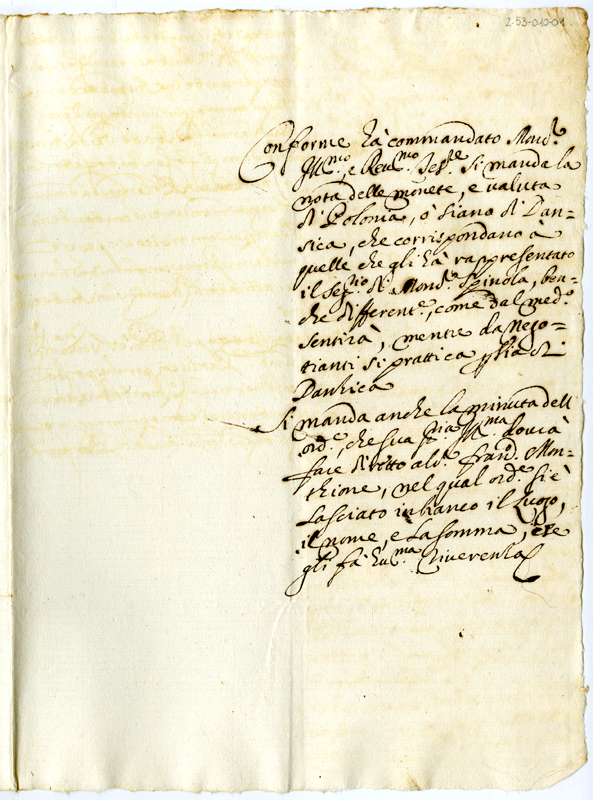 2-53-010-01
Conforme hà commandato Mons.r
Ill.mo, e Reu.mo Ses.te si manda la
nota delle monete, e valuta
di Polonia, ò siano di Dan=
sica, che corrispondano à
quelle che gli hà rappresentato
il Seg.rio di Mons.r Spinola, ben=
che different.e, come dal med.o
sentirà, mentre da Nego=
tianti si prattica
Danzica
Si manda anche la minuta dell
ord.e, che sua S.ria Ill.ma dourà
fare diretto al S.r Fran.o Mon=
thione, nel qual ord.e si è
Lasciato in bianco il Luogo,
il nome, e La somma, che
gli fà hu.ma Riuerenza